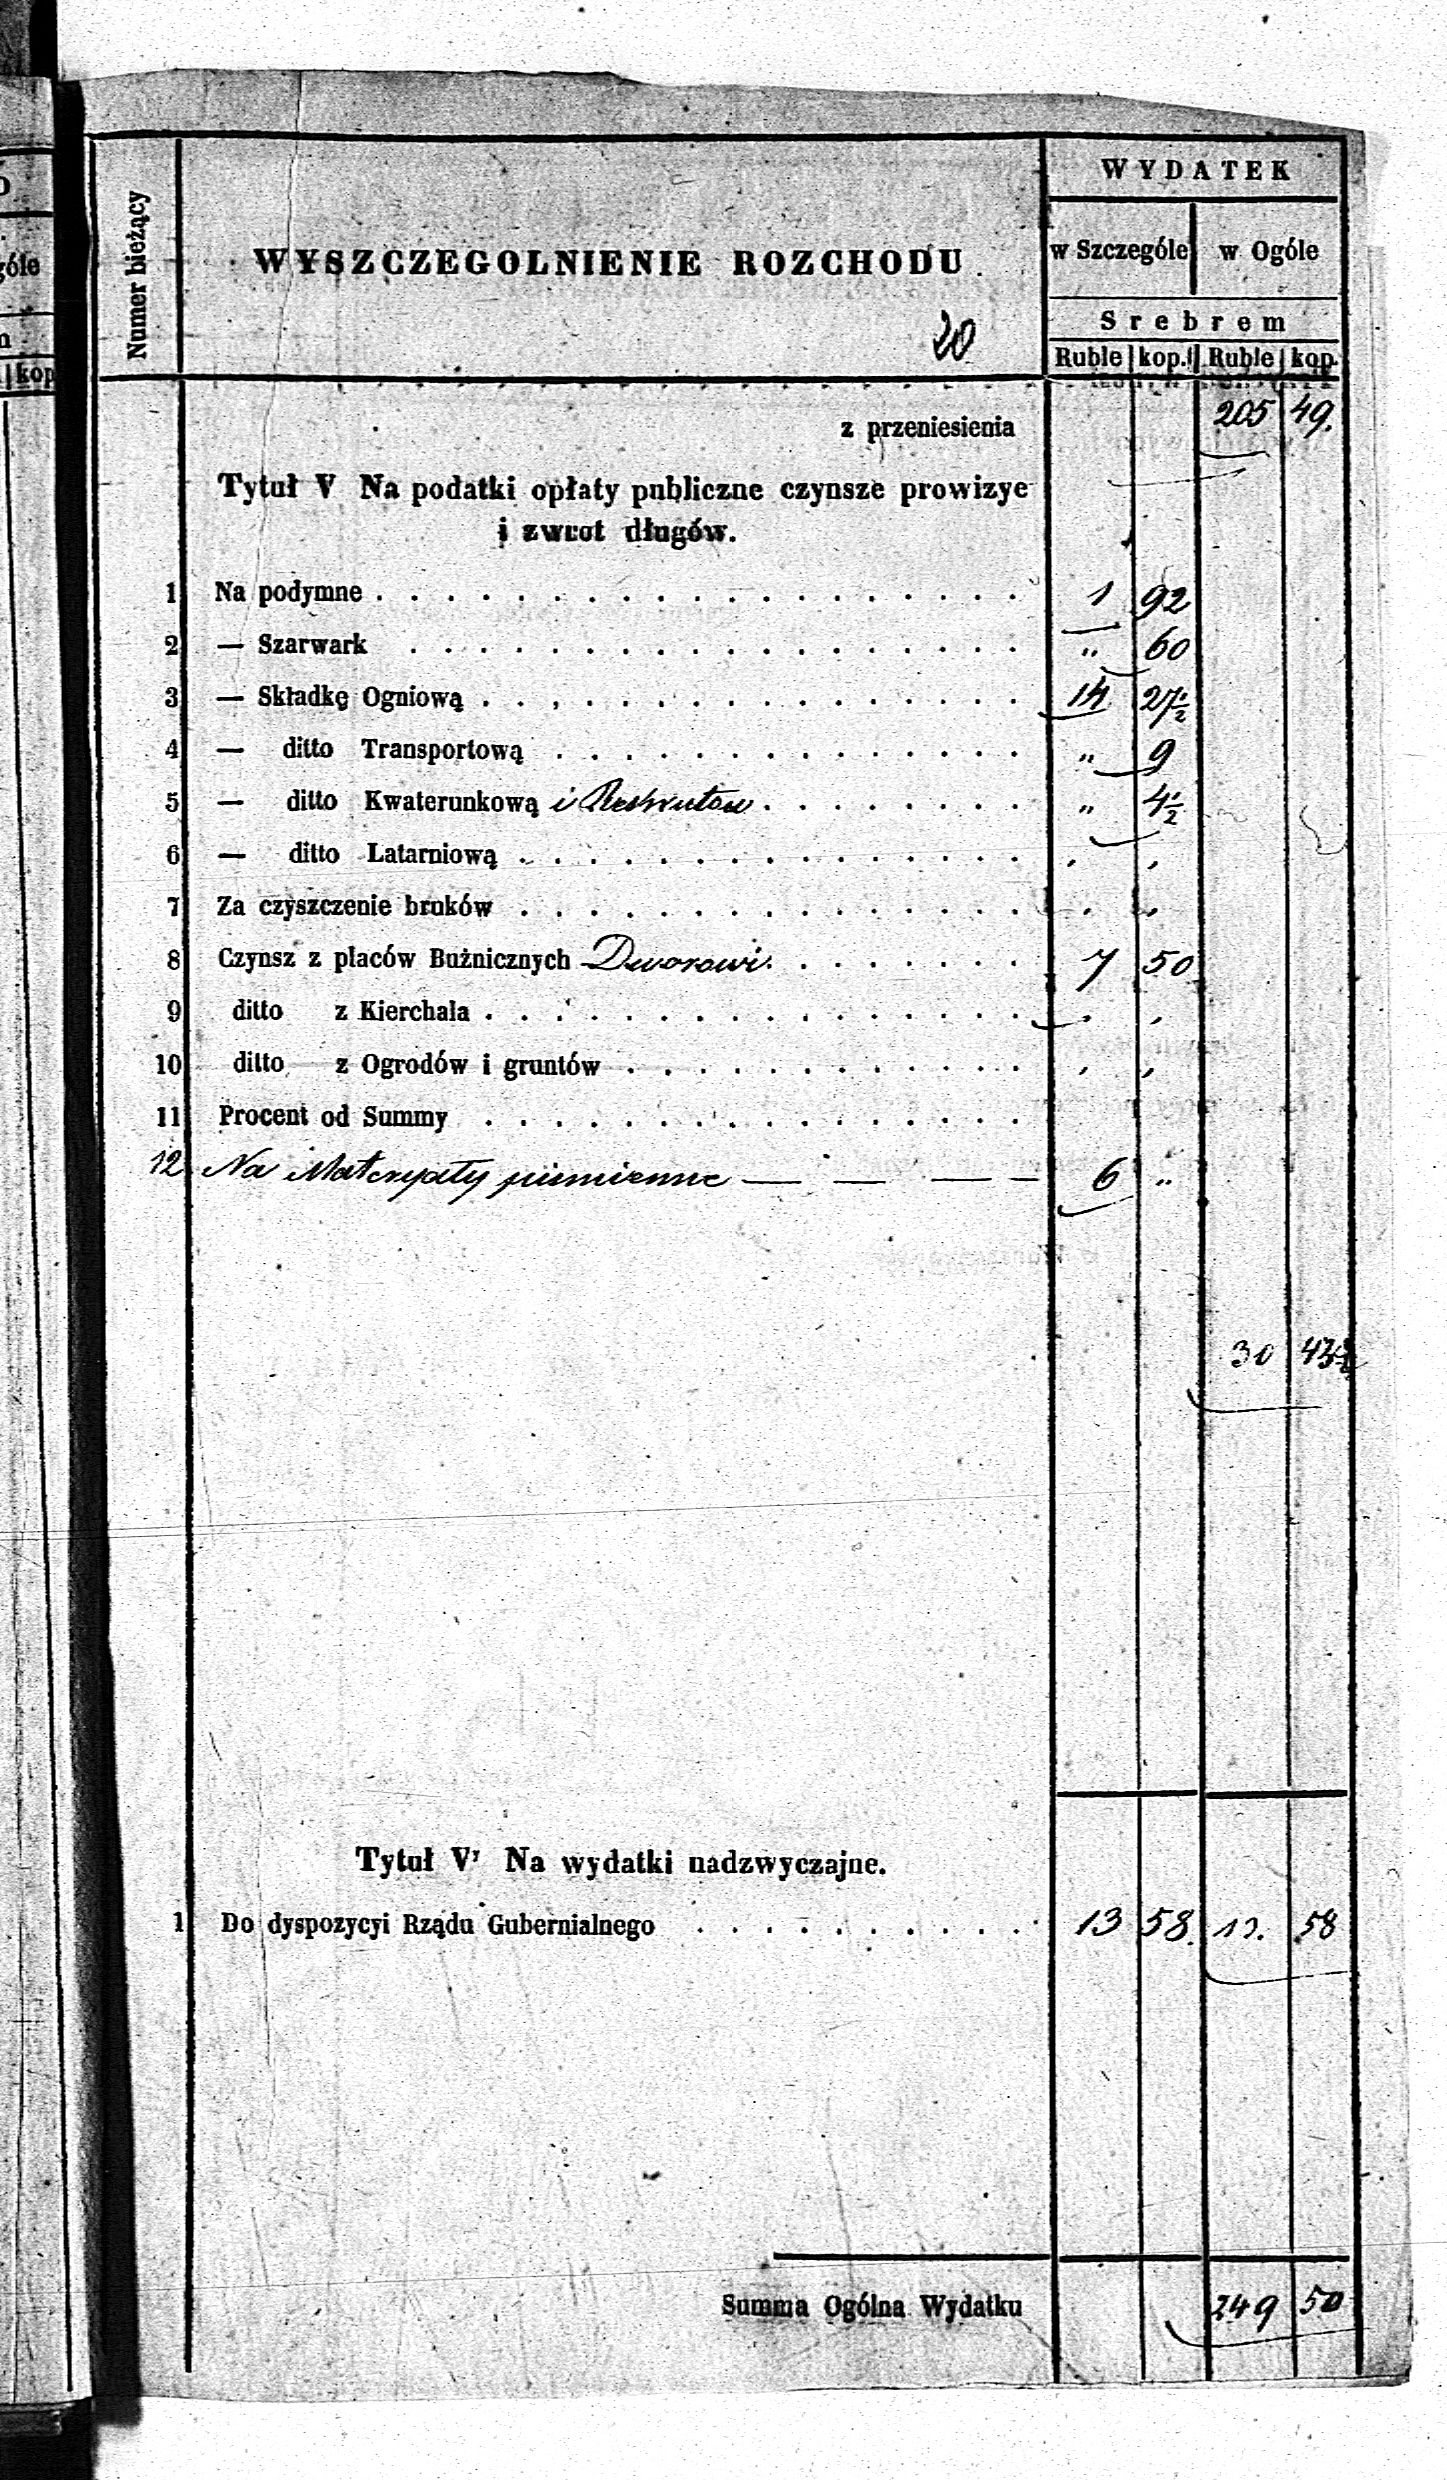 Numer bieżący
WYSZCZEGOLNIENIE ROZCHODU
20
WYDATEK
w Szczególe w Ogóle
Srebrem
Ruble kop. Ruble kop.
z przeniesienia 205 49.
Tytuł V Na podatki opłaty publiczne czynsze prowizye
i zwrot długów.
1 Na podymne . . . . . . . . . . . . . . . . . . . 1 92
2 — Szarwark . . . . . . . . . . . . . . . . . . „ 60
3 — Składkę Ogniową . . . . . . . . . . . . . . . . 14 27½
4 — ditto Transportową . . . . . . . . . . . . . . „ 9
5 — ditto Kwaterunkową i . . . . . . . . „ 4½
6 — ditto Latarniową . . . . . . . . . . . . . . .
7 Za czyszczenie bruków . . . . . . . . . . . . . . .
8 Czynsz z placów Bużnicznych Dworowi . . . . . . . . 7 50
9 ditto z Kierchala . . . . . . . . . . . . . . . .
10 ditto z Ogrodów i gruntów . . . . . . . . . . . .
11 Procent od Summy . . . . . . . . . . . . . . . .
12 Na Materyały piśmienne — — — — 6 „
30 43
Tytuł V' Na wydatki nadzwyczajne.
1 Do dyspozycyi Rządu Gubernialnego . . . . . . . . . . 13 58. 13. 58
Summa Ogólna Wydatku 249 50
góle
kop